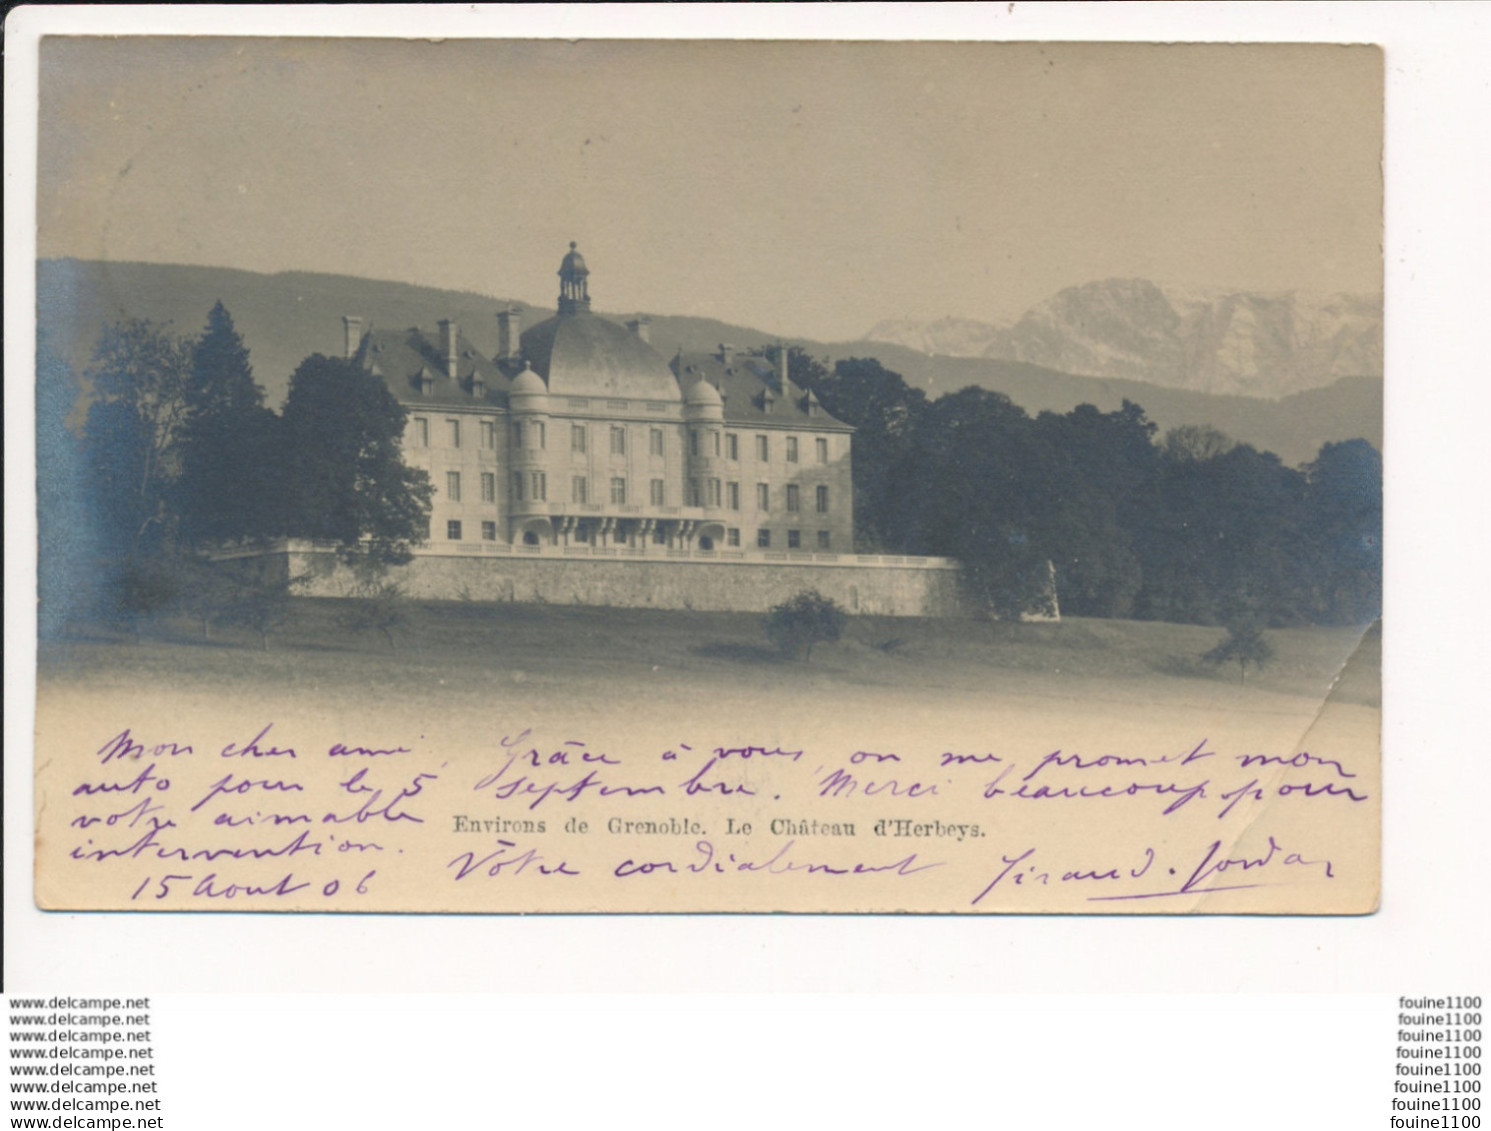 Mon cher ami, Grâce à vous, on me promet mon
auto pour le 5 septembre. Merci beaucoup pour
votre aimable
intervention.
Environs de Grenoble. Le Château d'Herbeys.
15 Aout 06 Vôtre cordialement Giraud-Jordan
www.delcampe.net
www.delcampe.net
www.delcampe.net
www.delcampe.net
www.delcampe.net
www.delcampe.net
www.delcampe.net
www.delcampe.net
fouine1100
fouine1100
fouine1100
fouine1100
fouine1100
fouine1100
fouine1100
fouine1100